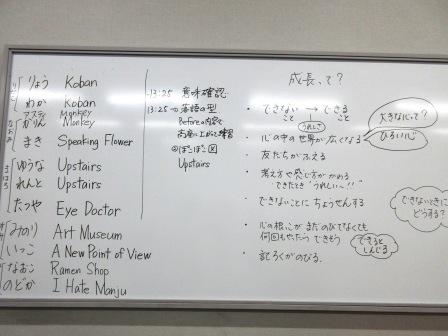 りょう Koban
わか Koban
アスティ Monkey
かりん Monkey
まき Speaking Flower
ゆうな Upstairs
れんと Upstairs
たつや Eye Doctor
みのり Art Museum
いっこ A New Point of View
なおこ Ramen Shop
のどか I Hate Manju
-13:25 意味確認
13:25→ 落語の型
Beforeの内容で
高座に上がって練習
Upstairs
成長って?
・できない → できる
こと こと
うれしさ
・心の中の世界が広くなる
大きな心って?
ひろい心
・友だちがふえる
・考え方や感じ方がかわる
できたとき"うれしい~!!"
・できないことにちょうせんする
できないときに
どうする?
・心の根っこがまだのびてなくても
何回もやったらできそう
できると
しんじる
・記ろくがのびる。